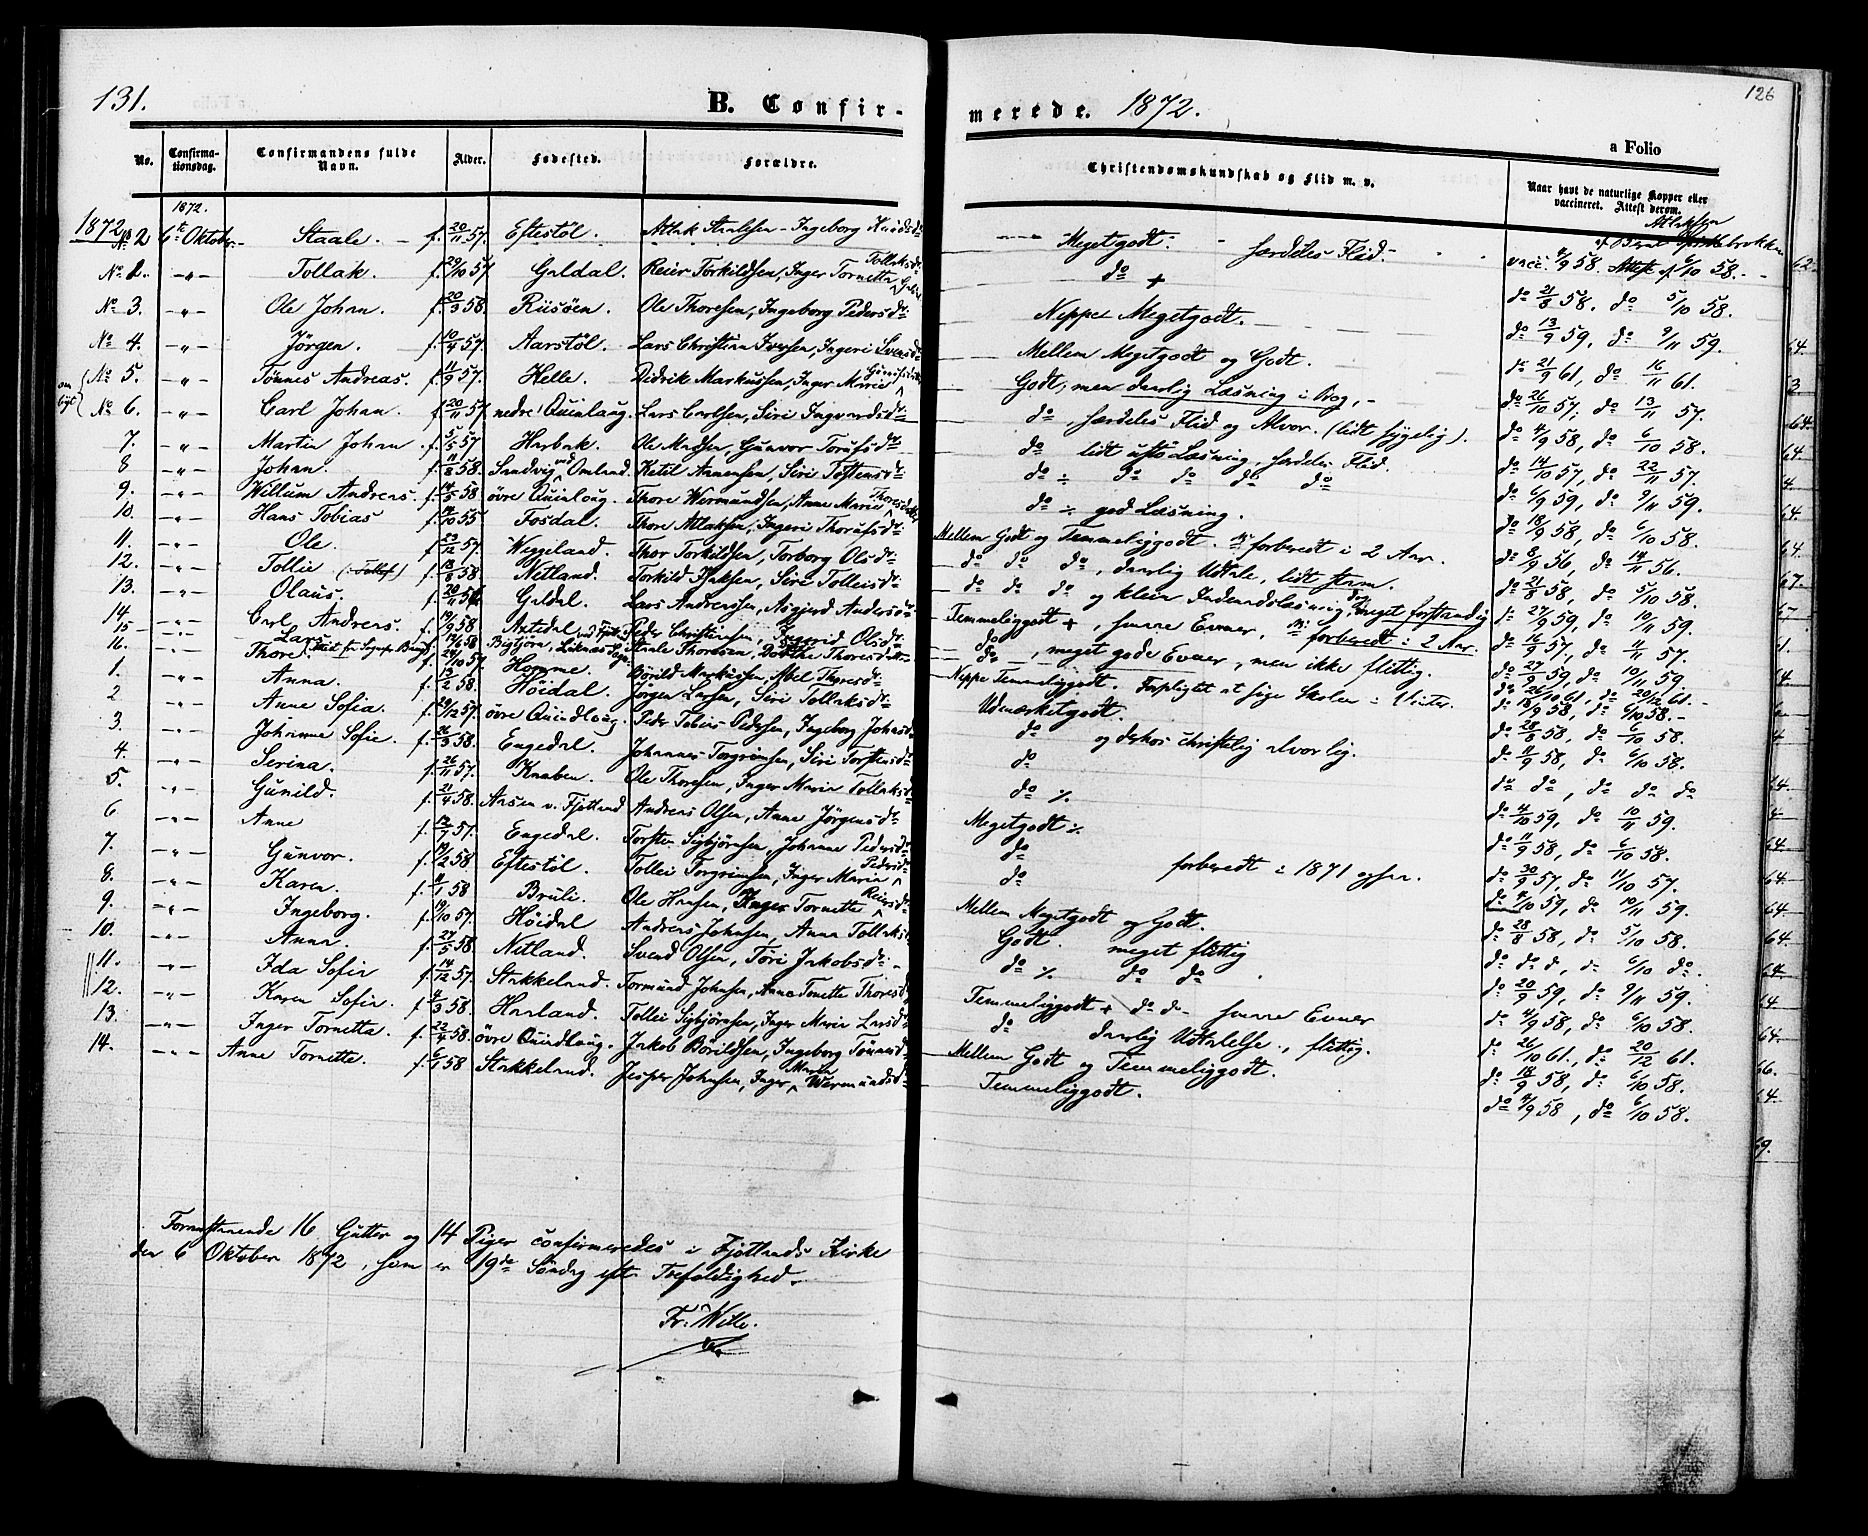 131.
B. Confir-
merede. 1872.
126
a Folio
No.
Confirma-
tionsdag.
Confirmandens fulde
Navn.
Alder.
Fødested.
Forældre.
Christendomskundskab og Flid m. v.
Naar havt de naturlige Kopper eller
vaccineret. Attest derom.
1872.
1872 No 2 6te Oktober Staale. f. 20/11 57. Eftestöl. Attlak Staalesen - Ingeborg Knudsdr Megetgodt. særdeles Flid.
No 2. -"- Tollak. f. 29/10 57. Galdal. Reier Torkildsen, Inger Tornetta Tollaksdr do + vacc. 58. Attest 6/10 58.
No 3. -"- Ole Johan. f. 20/3 58. Riisöen. Ole Thoresen, Ingeborg Pedersdr: Neppe Megetgodt. do 21/8 58. do 5/10 58.
No 4. -"- Jörgen. f. 10/4 57. Aarstöl. Lars Christian Iversen, Ingeri Svensdr Mellem Megetgodt og Godt. do 13/9 59, do 9/11 59.
om
byt
No 5. -"- Tönnes Andreas. f. 11/9 57. Helle. Didrik Markussen, Inger Marie Godt, men daarlig Læsning i Bog, do 21/9 61, do 16/11 61.
No 6. -"- Carl Johan. f. 20/11 57. nedre Quinlaug. Lars Carlsen, Siri Ingvardsdr do, særdeles Flid og Alvor. (lidt sygelig). do 26/10 57. do 13/11 57.
7. -"- Martin Johan f. 5/5 57 Harbak. Ole Madsen, Gunvor Torufsdr do lidt Læsning, særdeles Flid. do 4/9 58, do 6/10 58.
8 -"- Johan. f. 11/8 58. Sandvig ud Omland. Ketil Annensen, Siri Tostensdr do ÷ do do do do do 14/10 57, do 22/11 57.
9. -"- Willum Andreas. f. 14/5 58 övre Quinlaug. Thore Wermundsen, Anne Marie Thoresdatter do ÷ god Læsning. do 6/9 59, do 9/11 59.
10. -"- Hans Tobias f. 14/10 55 Fosdal. Thore Attlaksen, Ingeri Thorufsdr Mellem Godt og Temmeliggodt. forberedt i 2 Aar. do 18/9 58, do 6/10 58.
11. -"- Ole. f. 23/12 57. Weggeland. Thor Torkildsen, Torborg Olsdr: do do do, daarlig Udtale, lidt do 8/9 56, do 14/11 56.
12. -"- Tollie (Tollef) f. 13/8 58. Netland. Torkild Isaksen, Siri Tolleisdr do do do og klein Indenadslæsning, meget forstandig do 21/8 58, do 5/10 58.
13. -"- Olaus. f. 20/11 56 Galdal. Lars Andreassen, Asgjerd Andersdr Temmeliggodt +, svare Evner, forberedt i 2 Aar. do 27/9 59, do 10/11 59.
14. -"- Carl Andreas. f. 19/9 58 Axtedal ved Fjotland Peder Christiansen, Ingrid Olsdr: do, meget gode Evner, men ikke flittig. do 16/9 57, do 11/11 57.
15 -"- Lars f. 14/4 58 Bigbjörn, Liknes Sogn Staale Thoresen, Dorthe Thoresdatter do do 27/9 59, do 10/11 59
16. -"- Thore. f. 29/10 57. Homme. Börild Markussen, Abel Thoresdr: Neppe Temmeliggodt. Forpligtet at söge Skolen i Vinter. do 26/10 61, do 20/12 61.
1. -"- Anna. f. 13/2 58. Höidal. Jörgen Larsen, Siri Tollaksdr: Udmærketgodt. do 18/9 58, do 6/10 58.
2 -"- Anne Sofia. f. 29/12 57. övre Quindlaug. Peder Tobias Pedersen, Ingeborg Johnsdr do og derhos christelig alvorlig. do 28/8 58, do 6/10 58.
3. -"- Johanne Sofie. f. 26/3 58. Engedal. Johannes Torgrimsen, Siri Torstensdr do do 11/9 58, do 6/10 58.
4. -"- Serina. f. 26/11 57. Knaben. Ole Thoresen, Inger Maria Tollaksdr do ÷ do do, do do do
5. -"- Gunild. f. 21/4 58. Aasen v. Fjotland Andreas Olsen, Anne Jörgensdr Megetgodt ÷ do 4/10 59, do 10/11 59.
6 -"- Anne f. 12/7 57. Engedal. Torsten Sigbjörnsen, Johanne Pedersdr do do 11/9 58, do 6/10 58.
7. -"- Gunvor. f. 19/2 58 Eftestöl. Tollei Torgrimsen, Inger Maria Pedersdr do forberedt i 1871 ogsaa. do 30/9 57, do 11/10 57.
8. -"- Karen. f. 11/1 58 Bruli. Ole Hansen, Inger Tornette Reiersdr Mellem Megetgodt og Godt. do 4/10 59, do 10/11 59.
9. -"- Ingeborg. f. 19/10 57. Höidal Andreas Johnsen, Anna Tollaksdr Godt. meget flittig do 28/8 58, do 5/10 58.
10. -"- Anna. f. 27/5 58. Netland. Svend Olsen, Tori Jakobsdr do ÷ do do do do d, do 6/10 do.
11. -"- Ida Sofia f. 14/12 57. Stakkeland. Tormund Johnsen, Anne Tonette Thoresdr Temmeliggodt + do do svare Evner do 20/9 59, do 9/11 59.
12. -"- Karen Sofia. f. 4/3 58. Haaland. Tollei Sigbjörnsen, Inger Maria Larsdr do daarlig Udtalelse, flittig. do 4/9 58, do 6/10 58
13. -"- Inger Tornetta. f. 22/4 58. övre Quindlaug. Jakob Börildsen, Ingeborg Tönnesdr Mellem Godt og Temmeliggodt. do 26/10 61, do 20/12 61.
14. -"- Anne Tornette. f. 6/1 58 Stakkeland. Jesper Johnsen, Inger Maria Wermundsdr Temmeliggodt. do 18/9 58, do 6/10 58.
do 4/9 58, do 6/10 58.
Foranstaaende 16 Gutter og 14 Piger confirmeredes i Fjotlands Kirke
den 6 Oktober 1872, som er 19de Söndag eft. Trefoldighed.
Fr: Wille.